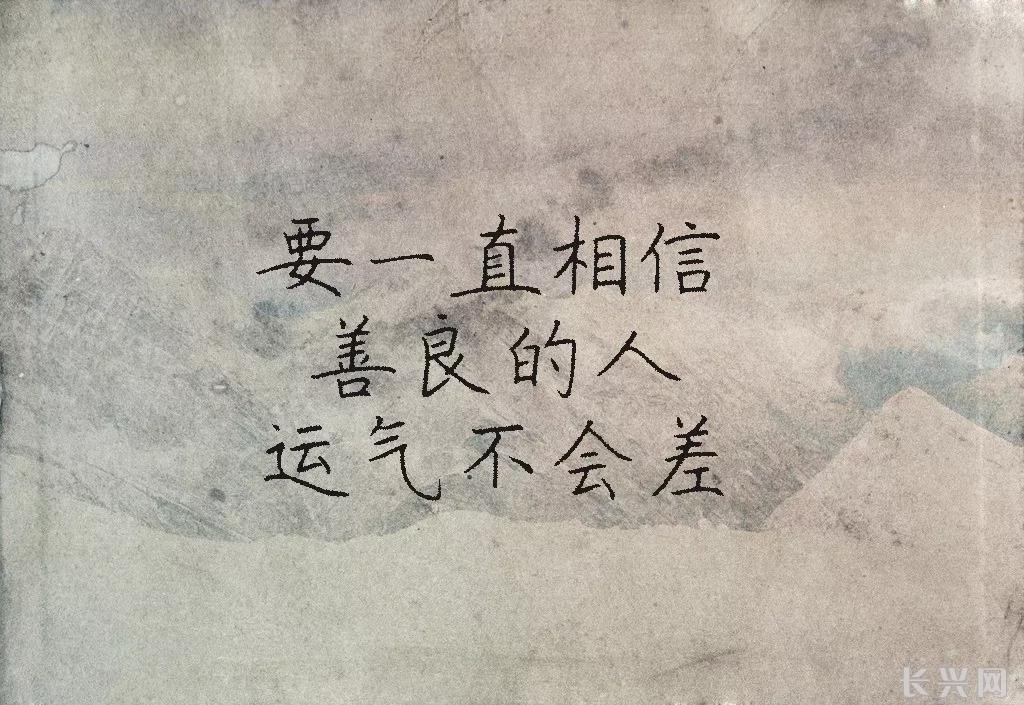 要一直相信
善良的人
运气不会差
长兴网